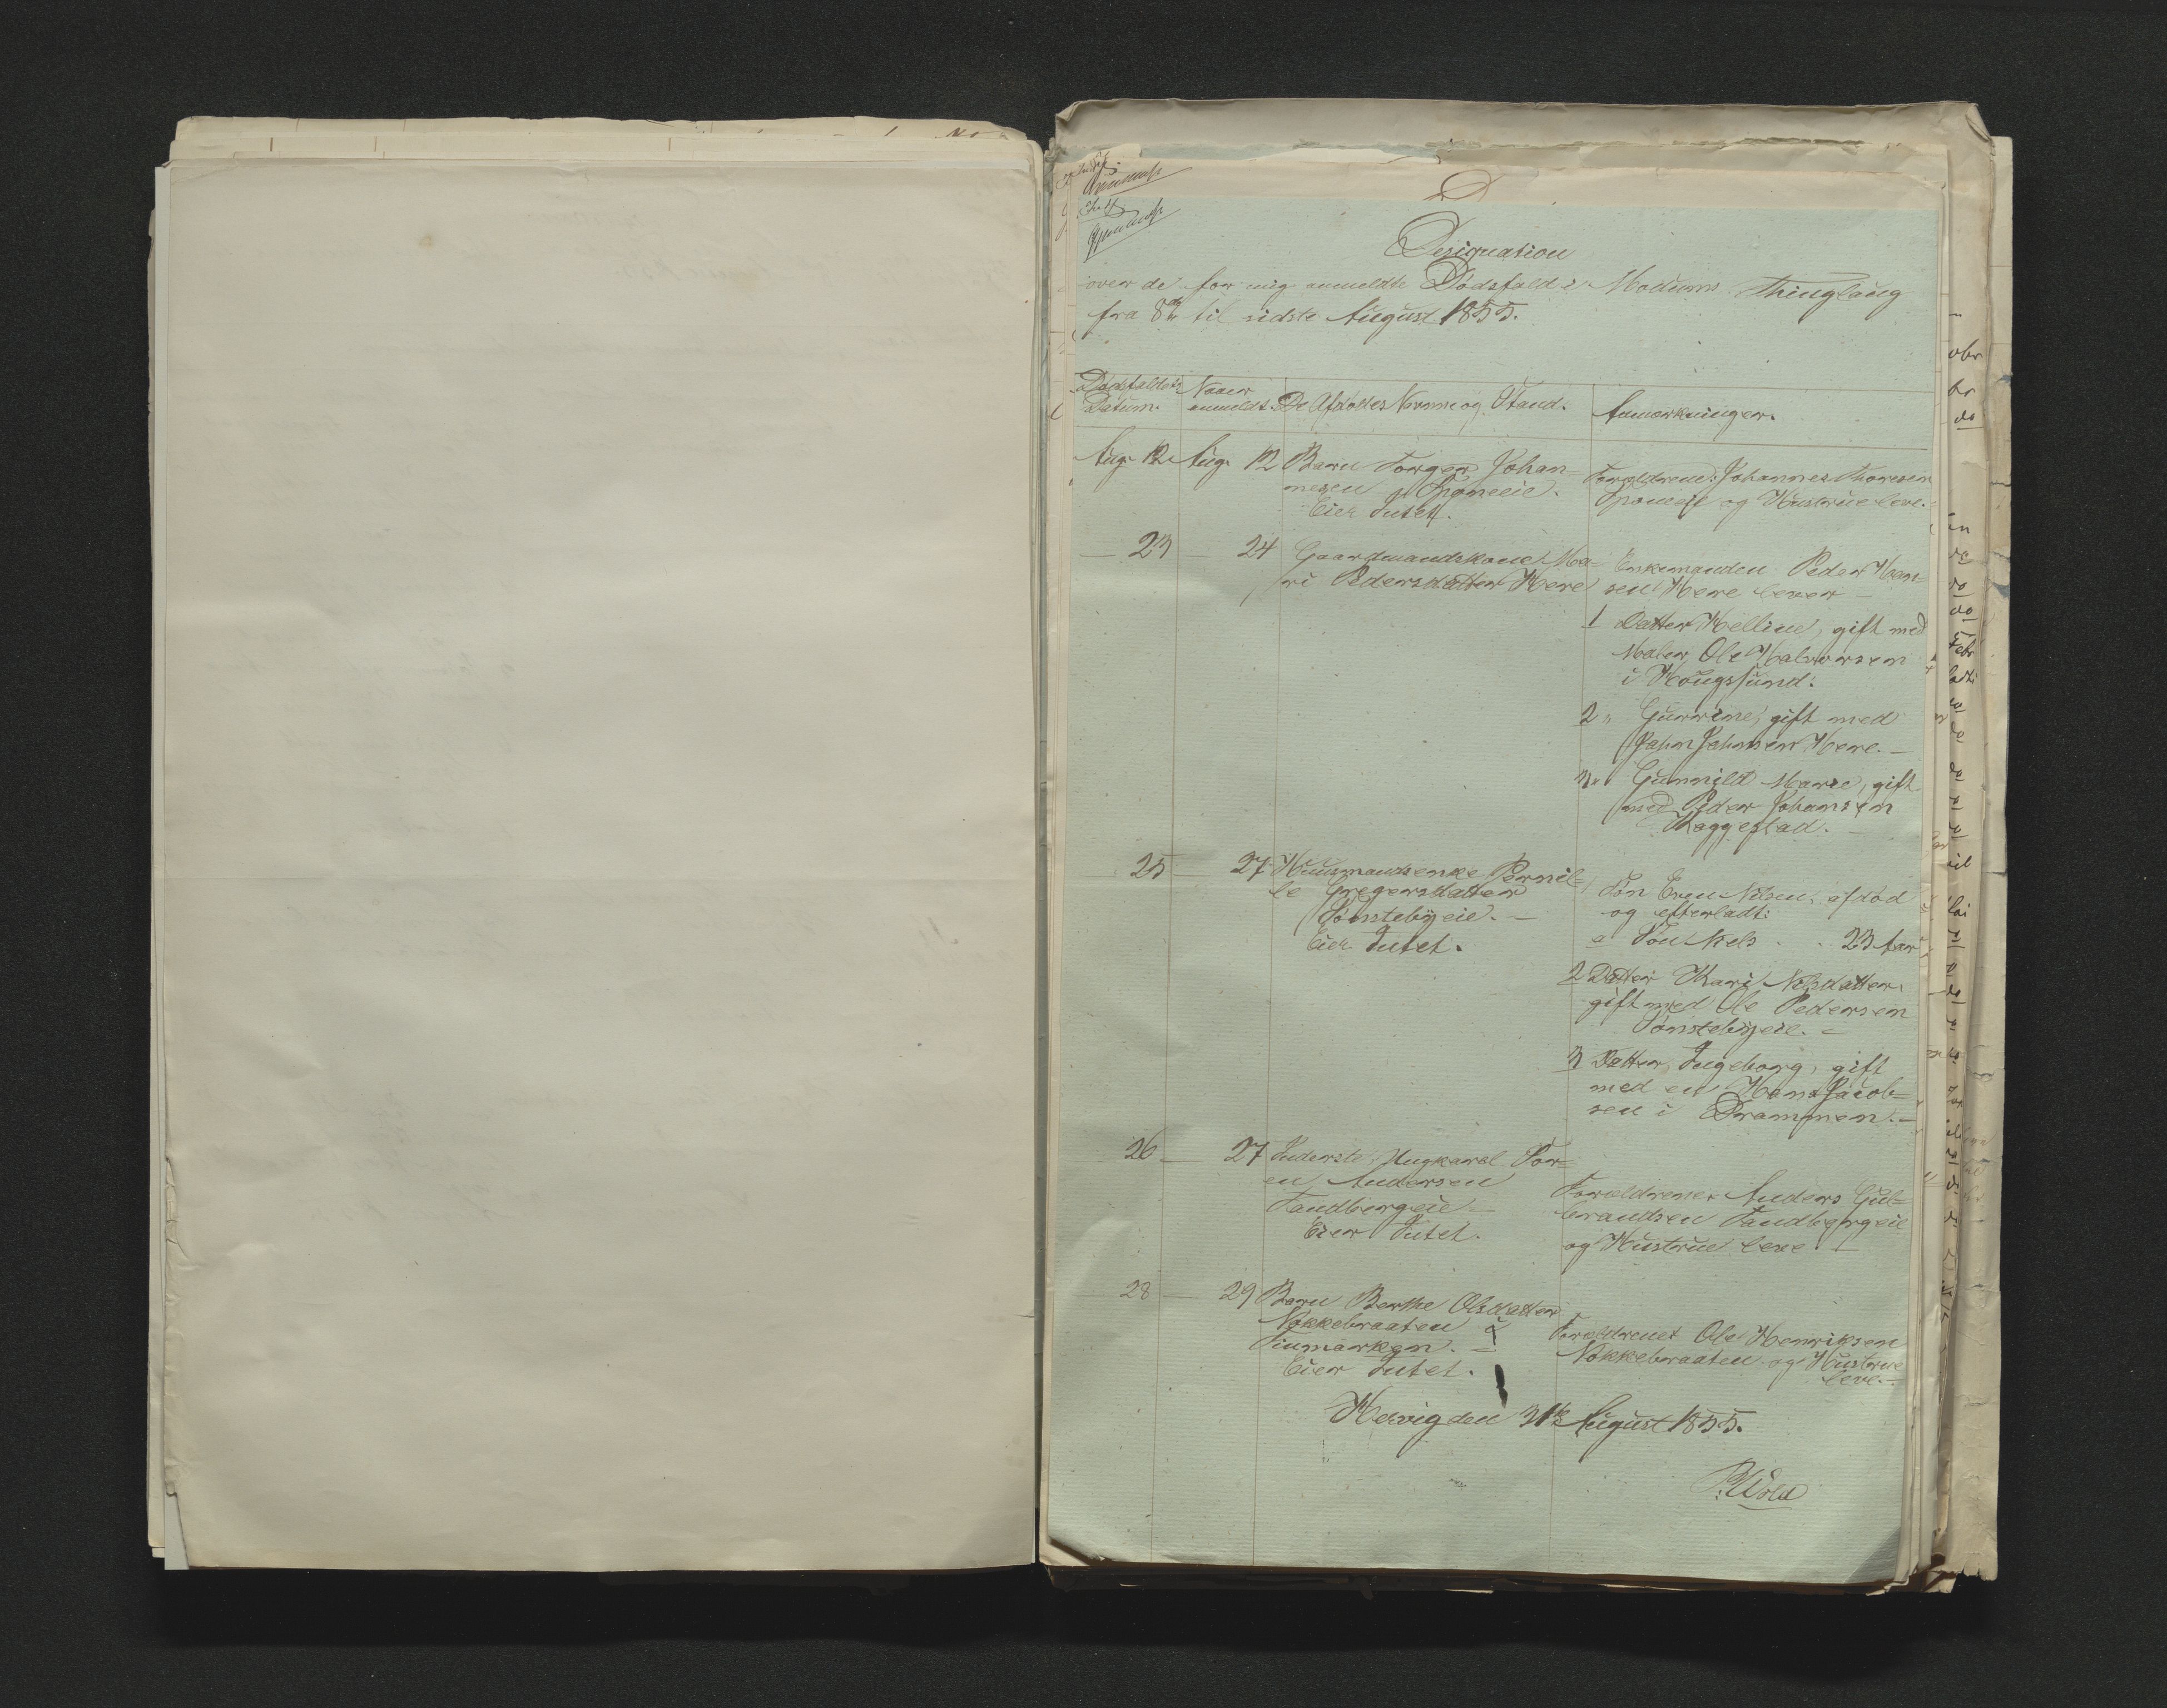 Designation
over de for mig anmeldte Dødsfald i Modums Thinglaug
fra 8de til sidste August 1855.
Dødsfaldets Datum.
Naar anmeldt.
De Afdødes Navne og Stand.
Anmærkninger.
Aug. 12
Aug. 12
Barn Torger Johan-
nesen Sponeeie.
Eier Intet.
Forældrene: Johannes Thoresen
Sponeeie og Hustrue leve.
— 23 — 24
Gaardmandskone Ma-
ri Pedersdatter Here
Enkemanden Peder Han-
sen Here lever —
1 Datter Helline, gift med
Maler Ole Halvorsen
i Hougsund.
2 " Gunrine, gift med
John Johnsen Here. —
3 " Gunnild Marie, gift
med Peder Johansen
Raggestad. —
25 — 27
Huusmandsenke Pernil-
le Gregersdatter
Tønstebyeie. —
Eier Intet.
Søn Even Nilsen, afdød
og efterladt:
a Søn Nels . . 23 Aar
2 Datter Kari Nilsdatter,
gift med Ole Pedersen
Tønstebyeie. —
3 Datter, Ingeborg, gift
med en Hans Jacob-
sen i Drammen. —
26 — 27
Inderste, Ungkarl Sør-
en Andersen
Tandbergeie —
Eier Intet.
Forældrene: Anders Gul-
brandsen Tandbergeie
og Hustrue leve —
28 — 29
Barn Berthe Olsdatter
Nokkebraaten i
Finmarken. —
Eier Intet.
Forældrene: Ole Henriksen
Nokkebraaten og Hustrue
leve. —
Hervig den 31te August 1855.
P. Wold